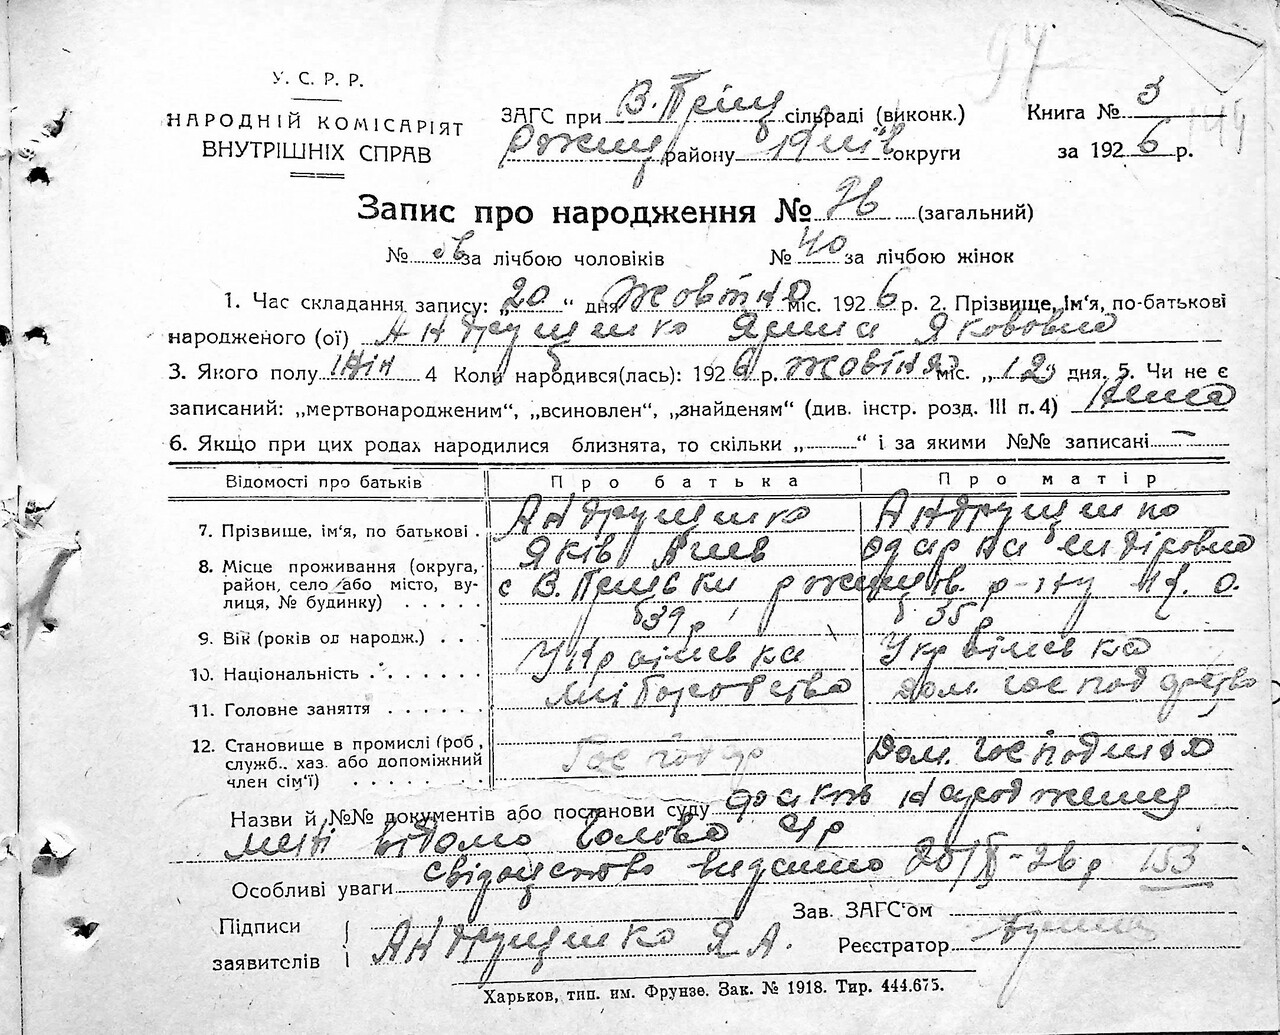 97
У. С. Р. Р.
НАРОДНІЙ КОМІСАРІЯТ
ВНУТРІШНІХ СПРАВ
ЗАГС при В. Пріц сільраді (виконк.)
району округи
Книга № 3
за 1926 р.
Запис про народження № 76 (загальний)
№ за лічбою чоловіків № 40 за лічбою жінок
1. Час складання запису: „20“ дня Жовтня міс. 1926 р. 2. Прізвище, ім'я, по-батькові
народженого (ої) Андрущенко Якововна
3. Якого полу жін 4 Коли народився(лась): 1926 р. жовтня міс. „12„ дня. 5. Чи не є
записаний: „мертвонародженим“, „всиновлен“, „знайденям“ (див. інстр. розд. III п. 4) Нема
6. Якщо при цих родах народилися близнята, то скільки „ “ і за якими №№ записані —
Відомості про батьків Про батька Про матір
7. Прізвище, ім'я, по батькові . Андрущенко Андрущенко
Яків Одарка
8. Місце проживання (округа, район, село або місто, вулиця, № будинку) . . . . . с В.
9. Вік (років од народж.) . . . 39 р 35 р
10. Національність . . . . . . . Українська Українська
11. Головне заняття . . . . . . Дом. господарство
12. Становище в промислі (роб., служб., хаз. або допоміжний член сім'ї) . . . . . . . Господар Дом. господиня
Назви й №№ документів або постанови суду факт народження
мені відомо Голова с/р
Особливі уваги свідоцтво видано 20/X-26 р 153
Підписи
заявителів Андрущенко Я А.
Зав. ЗАГС'ом
Реєстратор
Харьков, тип. им. Фрунзе. Зак. № 1918. Тир. 444.675.